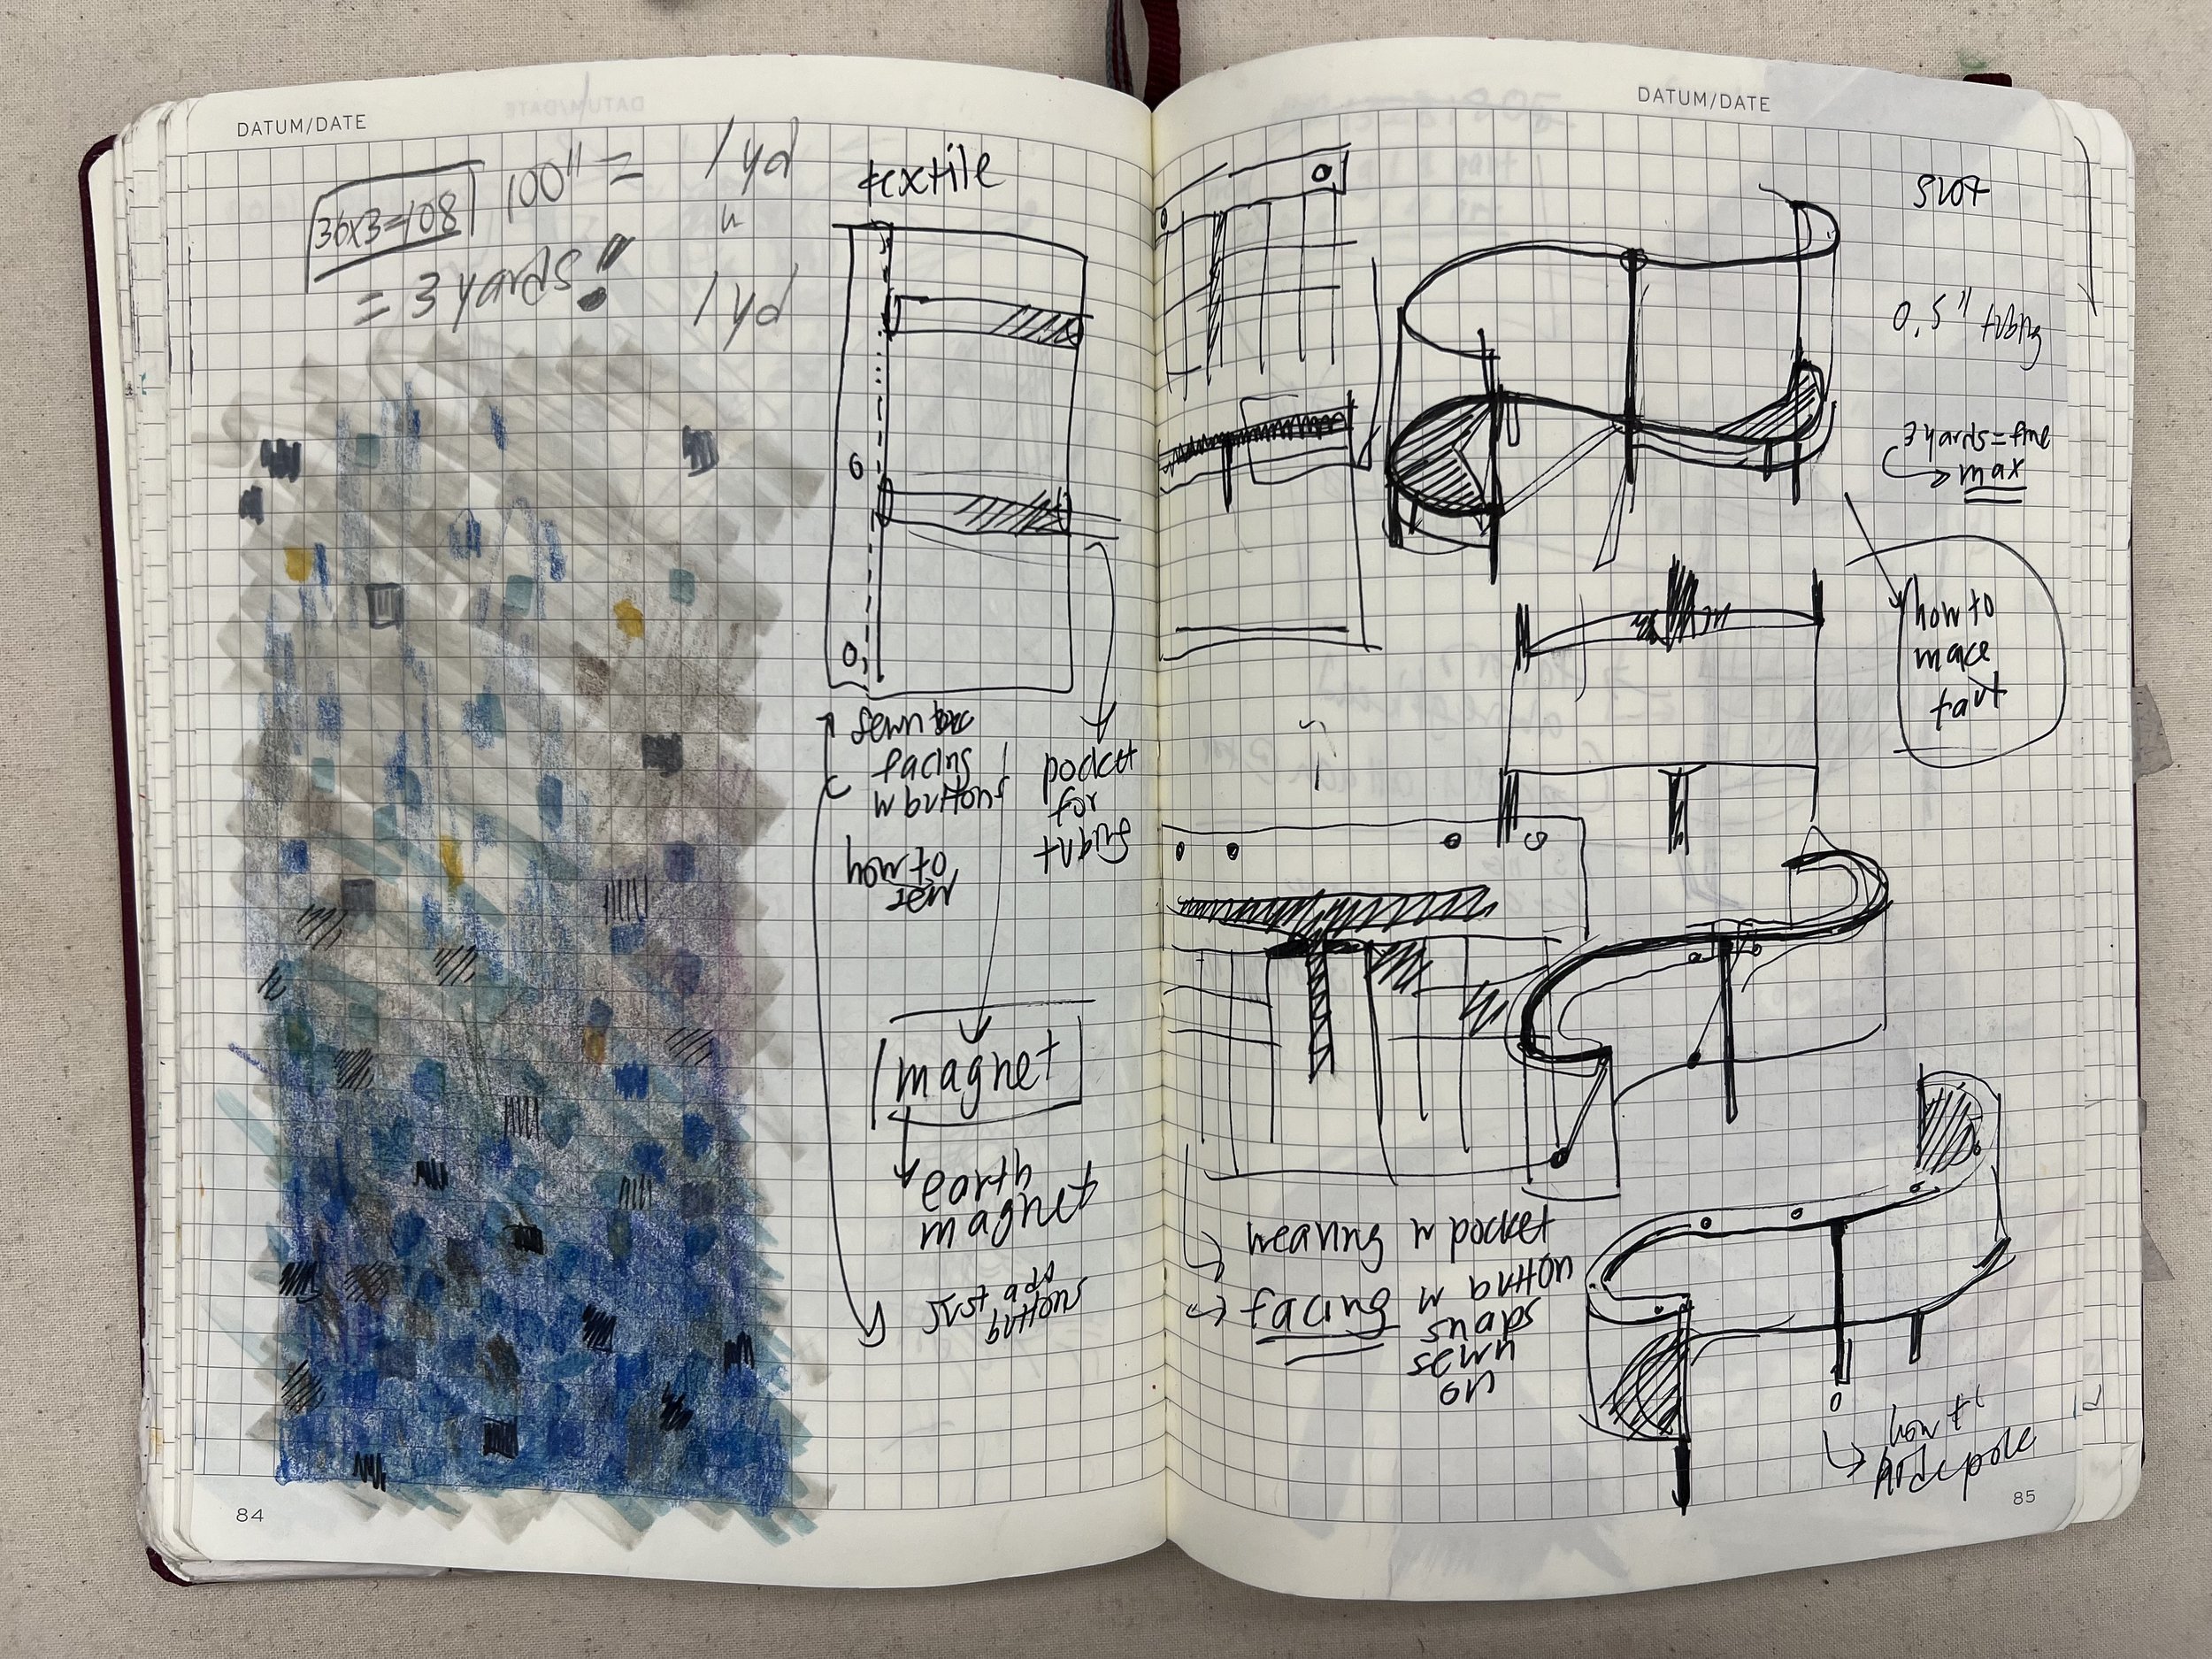 DATUM/DATE
36x3=108
100" = 1 yd
"
= 3 yards!!
1 yd
textile
sewn
facing
w buttons
how to
sew
pocket
for
tubing
magnet
earth
magnet
just add
buttons
84
DATUM/DATE
SLOT
0.5" tubing
3 yards = fine
max
how to
make
taut
weaving w pocket
facing w button
snaps
sewn
on
how to
hide pole
85